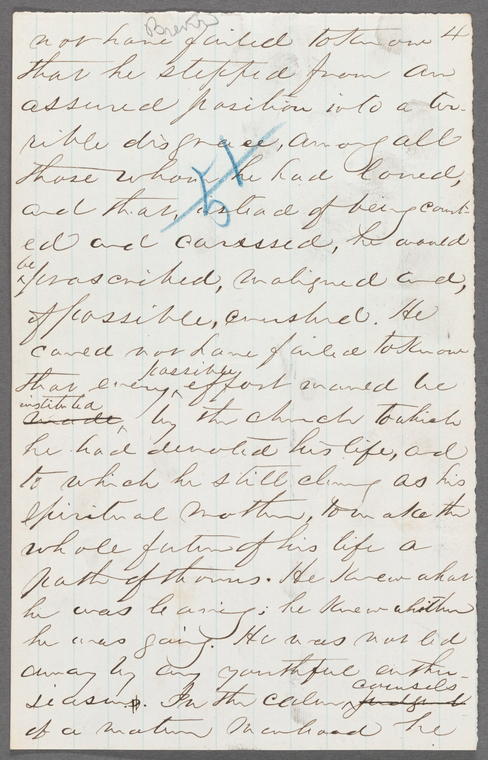 Brevier
not have failed to know 4
that he stepped from an
assured position into a ter-
rible disgrace, among all
51
those whom he had loved,
and that, instead of being court-
ed and caressed, he would
be
proscribed, maligned and,
if possible, crushed. He
could not have failed to know
possible
that every effort would be
instituted
made, by the church to which
he had devoted his life, and
to which he still clung as his
spiritual mother, to make the
whole future of his life a
path of thorns. He knew what
he was leaving; he knew whither
he was going. He was not led
away by any youthful enthu-
siasm. In the calm
counsels
judgment
of a mature manhood he